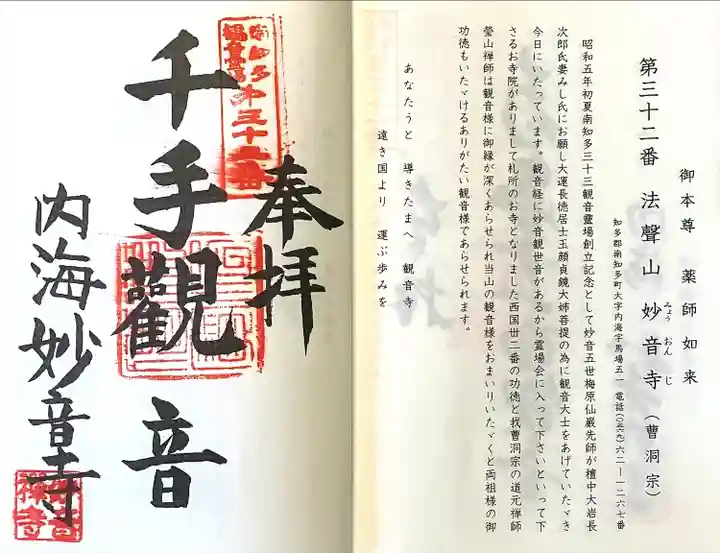 御本尊　薬師如来
第三十二番　法聲山　妙音寺（曹洞宗）
みょうおんじ
知多郡南知多町大字内海字馬場五一　電話（〇五六九）六二―一二六七番
昭和五年初夏南知多三十三観音霊場創立記念として妙音五世梅原仙巌先師が檀中大岩長
次郎氏妻みし氏にお願し大運長徳居士玉顔貞鏡大姉菩提の為に観音大士をあげていたゞき
今日にいたっています。観音経に妙音観世音があるから霊場会に入って下さいといって下
さるお寺院がありまして札所のお寺となりました西国丗二番の功徳と我曹洞宗の道元禅師
瑩山禅師は観音様に御縁が深くあらせられ当山の観音様をおまいりいたゞくと両祖様の御
功徳もいたゞけるありがたい観音様であらせられます。
あなたうと　導きたまへ　観音寺
遠き国より　運ぶ歩みを
奉拝
南知多
観音霊場第三十二番
千手觀音
内海妙音寺